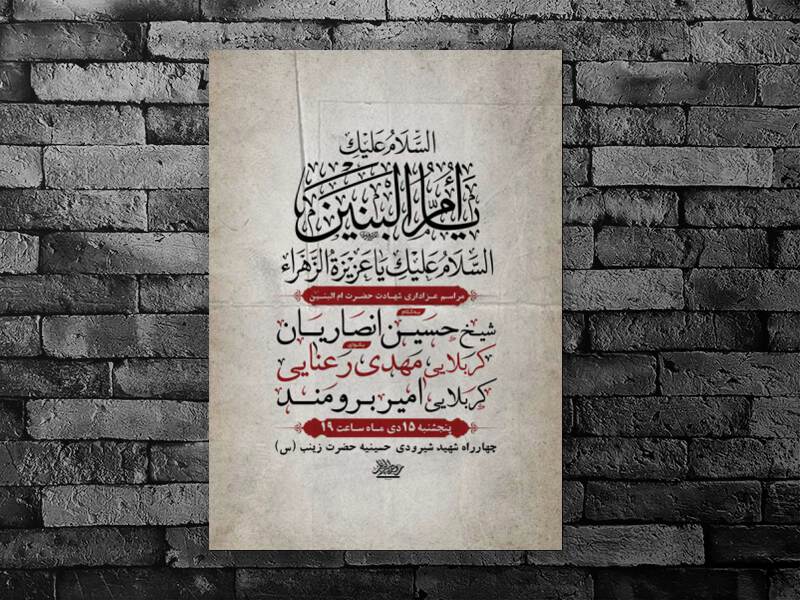 السَّلَامُ عَلَيْكِ
يَا أُمَّ الْبَنِينَ
السَّلَامُ عَلَيْكِ يَا عَزِيزَةَ الزَّهْرَاءِ
مراسم عزاداری شهادت حضرت ام البنین
به کلام
شیخ حسین انصاریان
بنوای
کربلایی مهدی رعنایی
کربلایی امیر برومند
پنجشنبه ۱۵ دی ماه ساعت ۱۹
چهارراه شهید شیرودی حسینیه حضرت زینب (س)